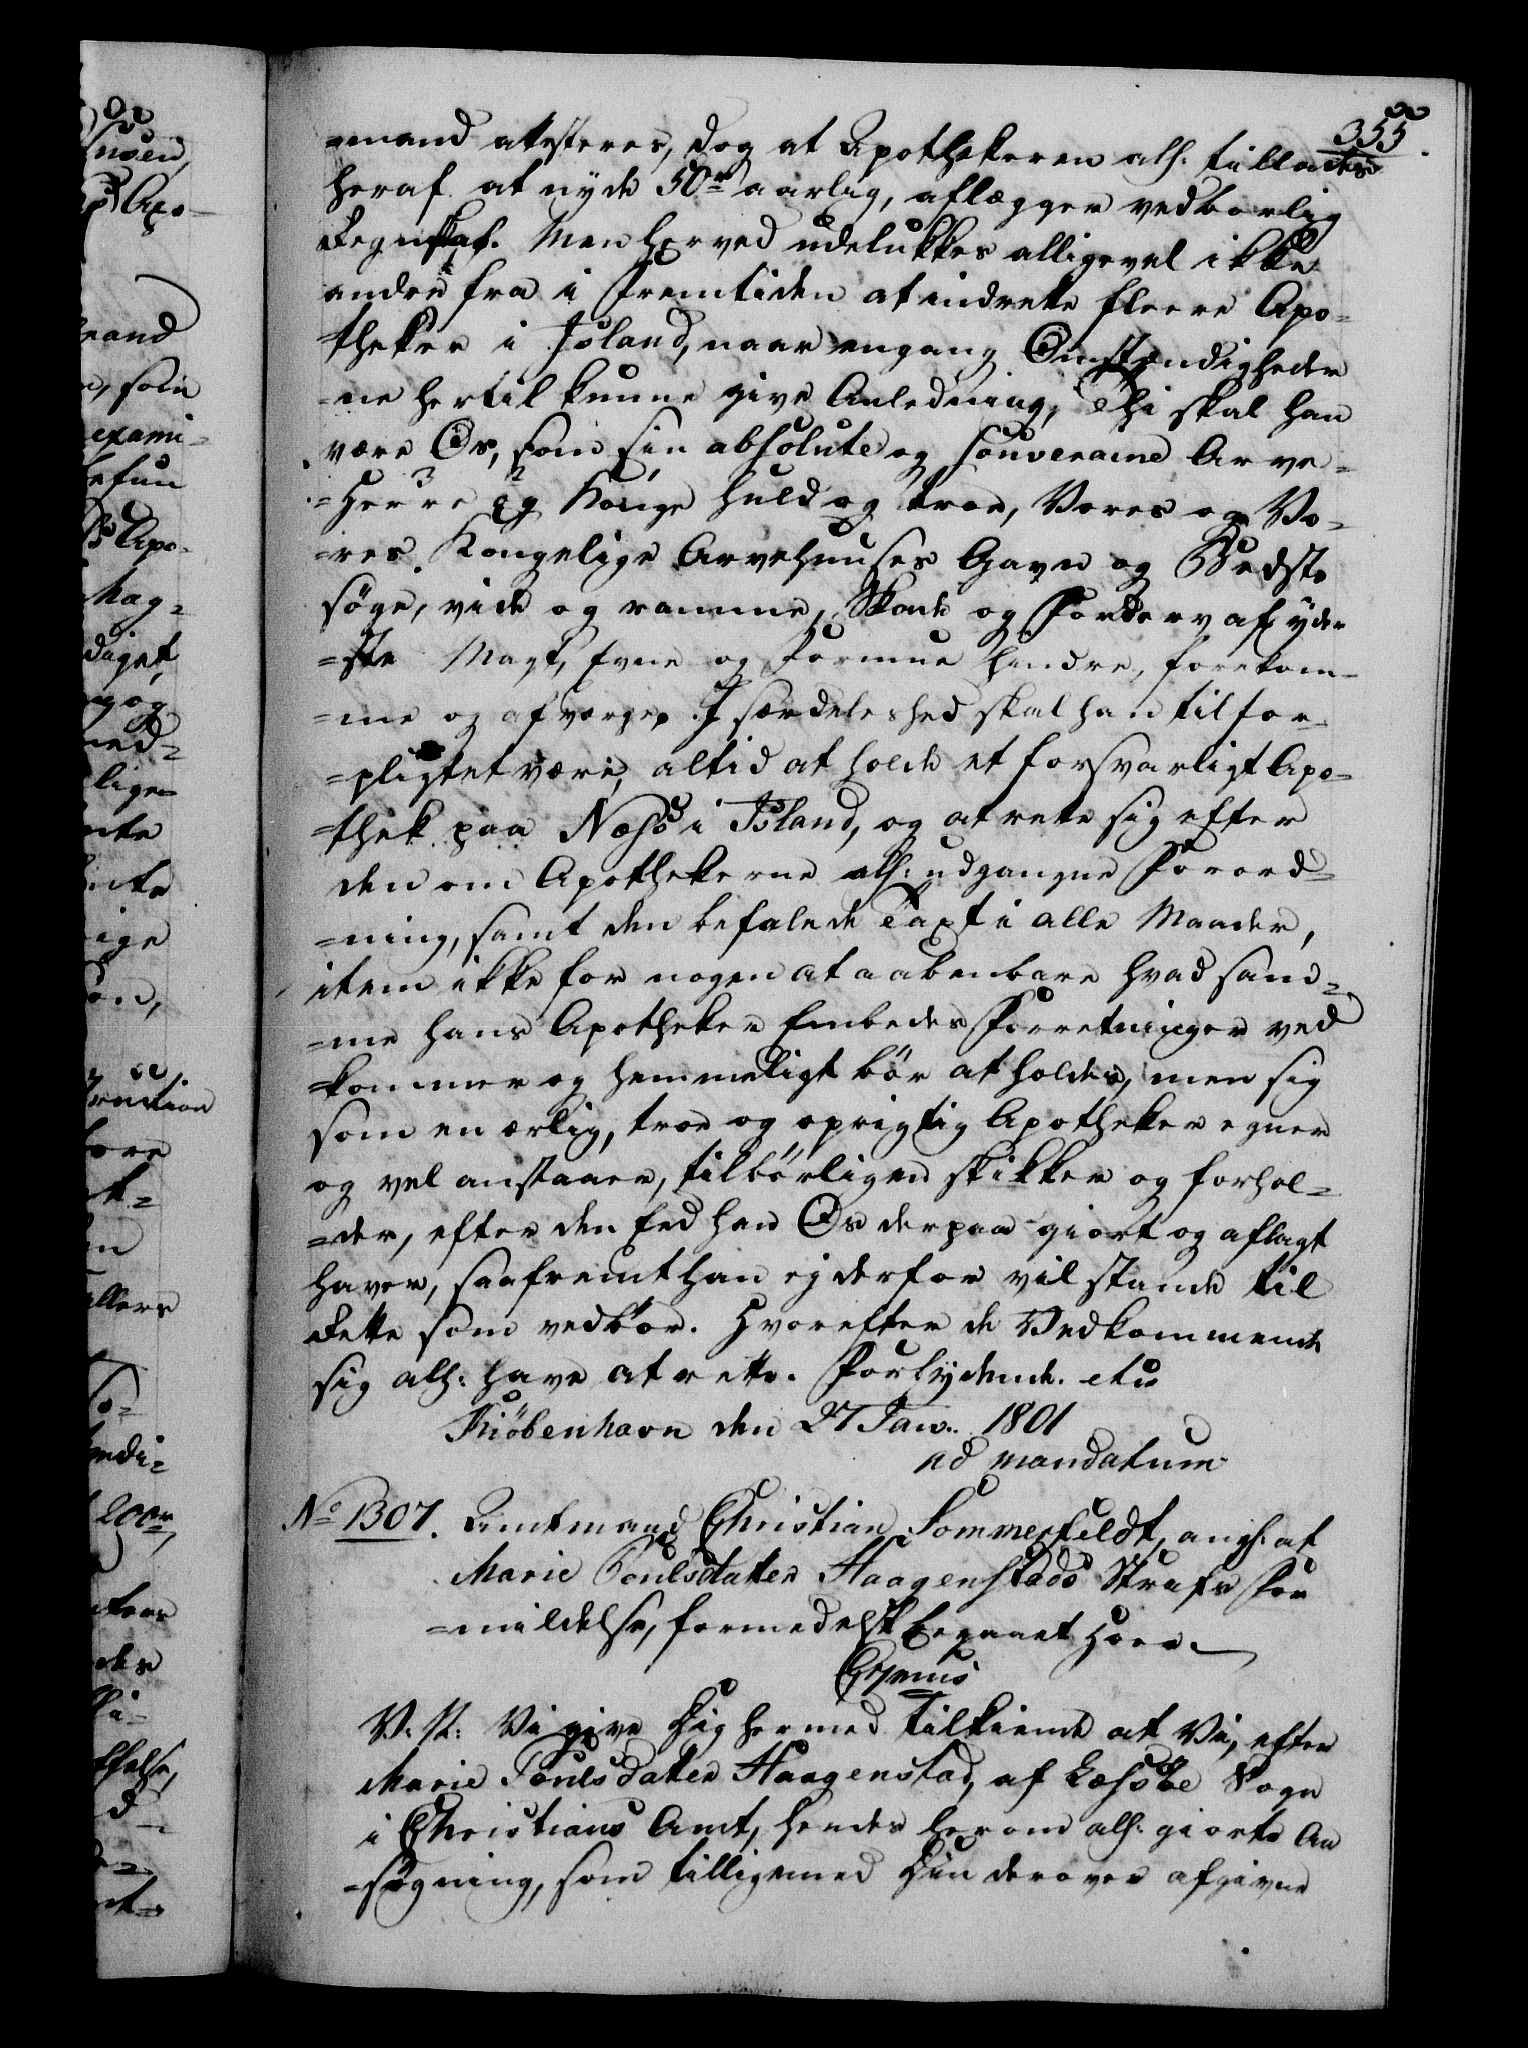 355.
=mand attesteres, dog at Apothekeren alh: tillades
heraf at nyde 50rd aarlig, aflægger vedbørlig
Regnskab. Men herved udelukkes alligevel ikke
andre fra i Fremtiden at indrette fleere Apo=
=theker i Island, naar engang Omstændigheder
=ne hertil kunne give Anledning, Thi skal han
være Os, som sin absolute og souveraine Arve=
=Herre og Konge huld og troe, Vores og Vo=
=res Kongelige Arvehuuses Gavn og Bedste
søge, vide og ramme, Skade og Forderv af yder
=ste Magt, Evne og Formue hindre, forekom=
=me og afværge. I særdeleshed skal han tilfor=
=pligtet være, altid at holde et forsvarligt Apo=
=thek paa Næss i Island, og at rette sig efter
den om Apothekerne alh: udgangne Forord=
=ning, samt den befalede Taxt i alle Maader,
item ikke for nogen at aabenbare hvad sam=
=me hans Apotheker Embedes Forretninger ved
kommer og hemmeligt bør at holdes, men sig
som en ærlig, troe og oprigtig Apotheker egner
og vel anstaaer, tilbørligen skikker og forhol=
=der, efter den Eed han Os derpaa giort og aflagt
haver, saafremt han ej derfor vil stande til
Rette som vedbør. Hvorefter de Vedkommende
sig alh: have at rette. Forbydende. etc
Kiöbenhavn den 27 Jan: 1801
ad mandatum
No 1307. Amtmand Christian Sommerfeldt, angl. at
Marie Poulsdatter Haagenstads Straffs For
=mildelse, formedelst begaaet Hoer.
Gr̄mus
V: K: Vi give Dig hermed tilkiende at Vi, efter
Marie Poulsdatter Haagenstad, af Læsøe Sogn
i Christians Amt, hendes herom alh: giorte An
=søgning, som tilligemed Din derover afgivne